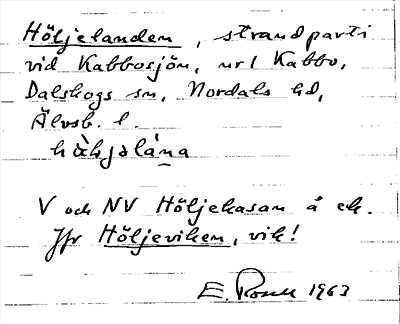 Höljelanden, strandparti
vid Kabbosjön, url Kabbo,
Dalskogs sn, Nordals hd,
Älvsb. l.
V och NV Höljekasan å ek.
Jfr Höljeviken, vik!
E. 1963